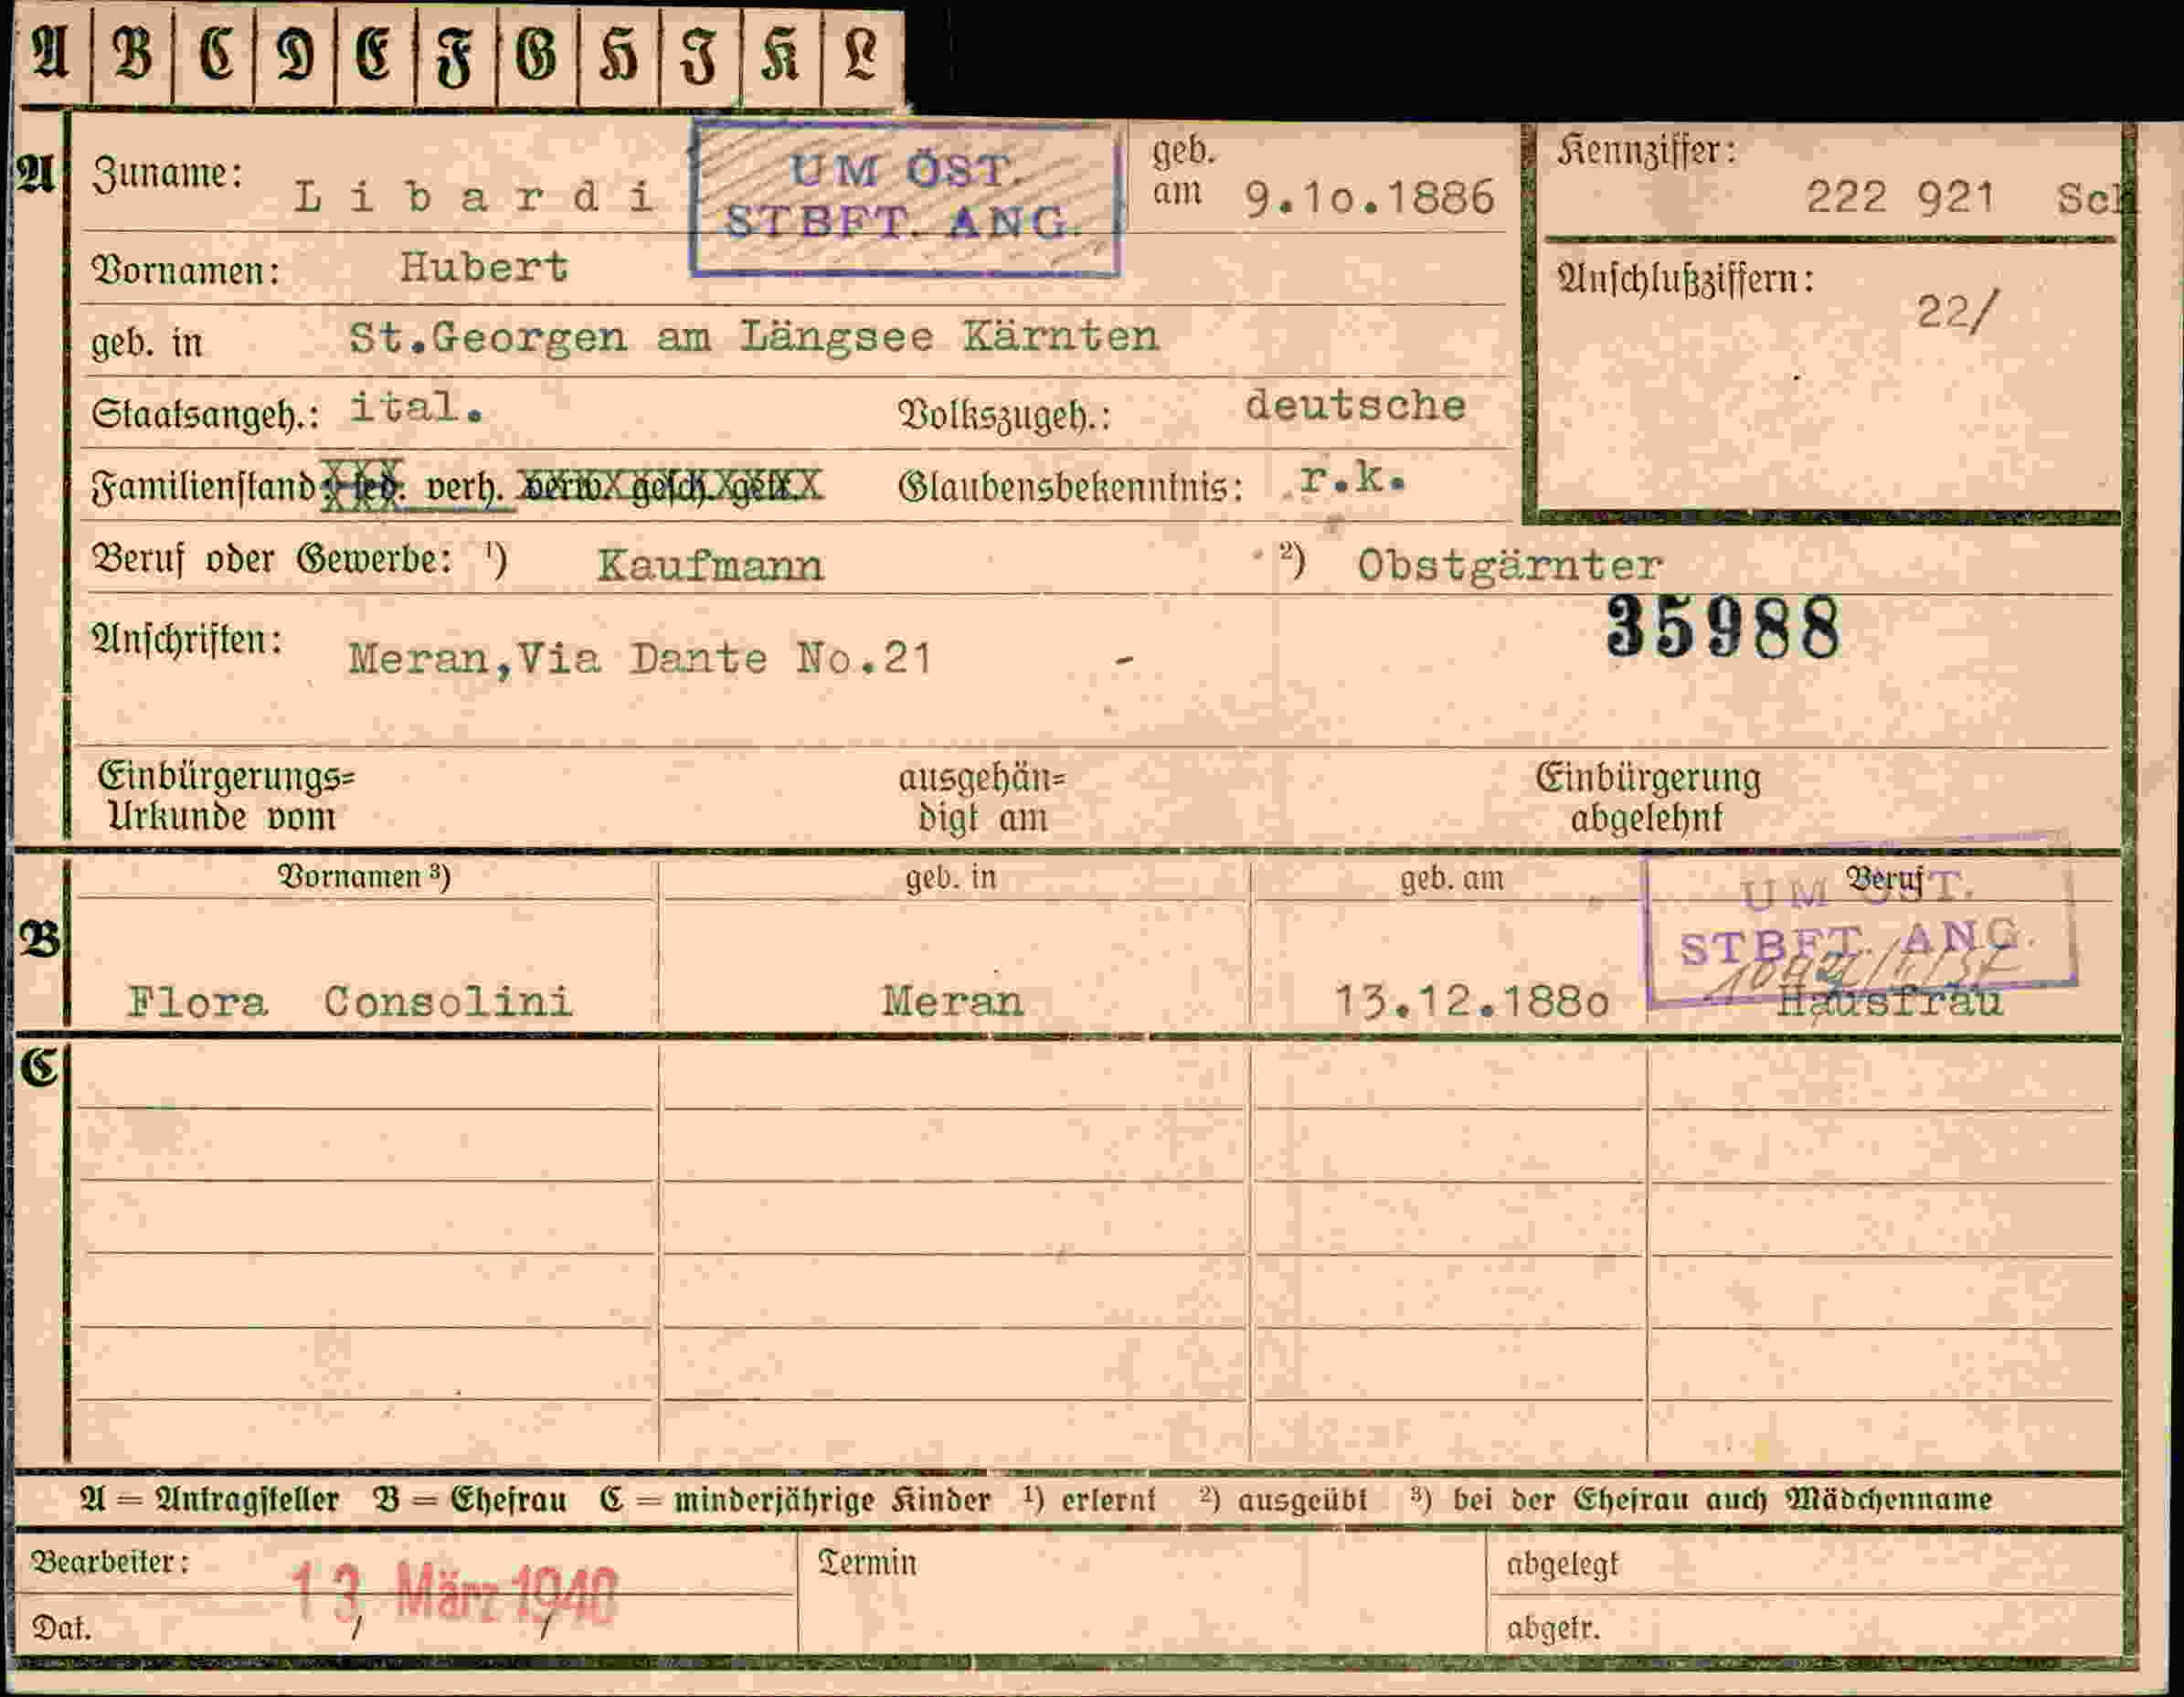 A B C D E F G H I K L
A Zuname: Libardi
UM ÖST.
STBFT. ANG.
geb. am 9.10.1886
Kennziffer:
222 921 Sch
Vornamen: Hubert
Anschlußziffern:
22/
geb. in St.Georgen am Längsee Kärnten
Staatsangeh.: ital. Volkszugeh.: deutsche
Familienstand: led. verh. verw. gesch. getr. Glaubensbekenntnis: r.k.
Beruf oder Gewerbe: ¹) Kaufmann ²) Obstgärnter
35988
Anschriften: Meran,Via Dante No.21 -
Einbürgerungs= ausgehän= Einbürgerung
Urkunde vom digt am abgelehnt
B Vornamen ³) geb. in geb. am Beruf
UM ÖST.
STBFT. ANG.
Flora Consolini Meran 13.12.1880 Hausfrau
C
A = Antragsteller B = Ehefrau C = minderjährige Kinder ¹) erlernt ²) ausgeübt ³) bei der Ehefrau auch Mädchenname
Bearbeiter: Termin abgelegt
13. März 1940
Dat. abgetr.